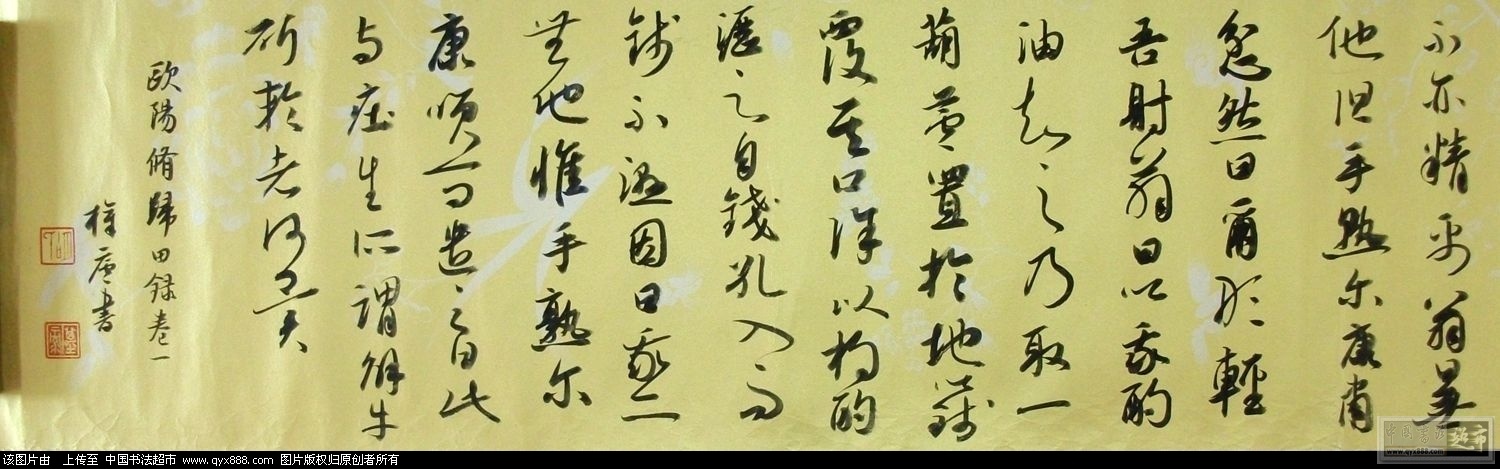 不亦精乎翁曰無
他但手熟尔康肅
忿然曰爾敢輕
吾射翁曰以我酌
油知之乃取一
葫蘆置於地錢
覆其口徐以杓酌
瀝之自錢孔入而
錢不濕因曰我亦
無他惟手熟尔
康肅笑而遣之此
与莊生所謂解牛
斫輪者何異
歐陽脩歸田録卷一
書
该图片由 上传至 中国书法超市 www.qyx888.com 图片版权归原创者所有
中国书法超市
www.qyx888.com